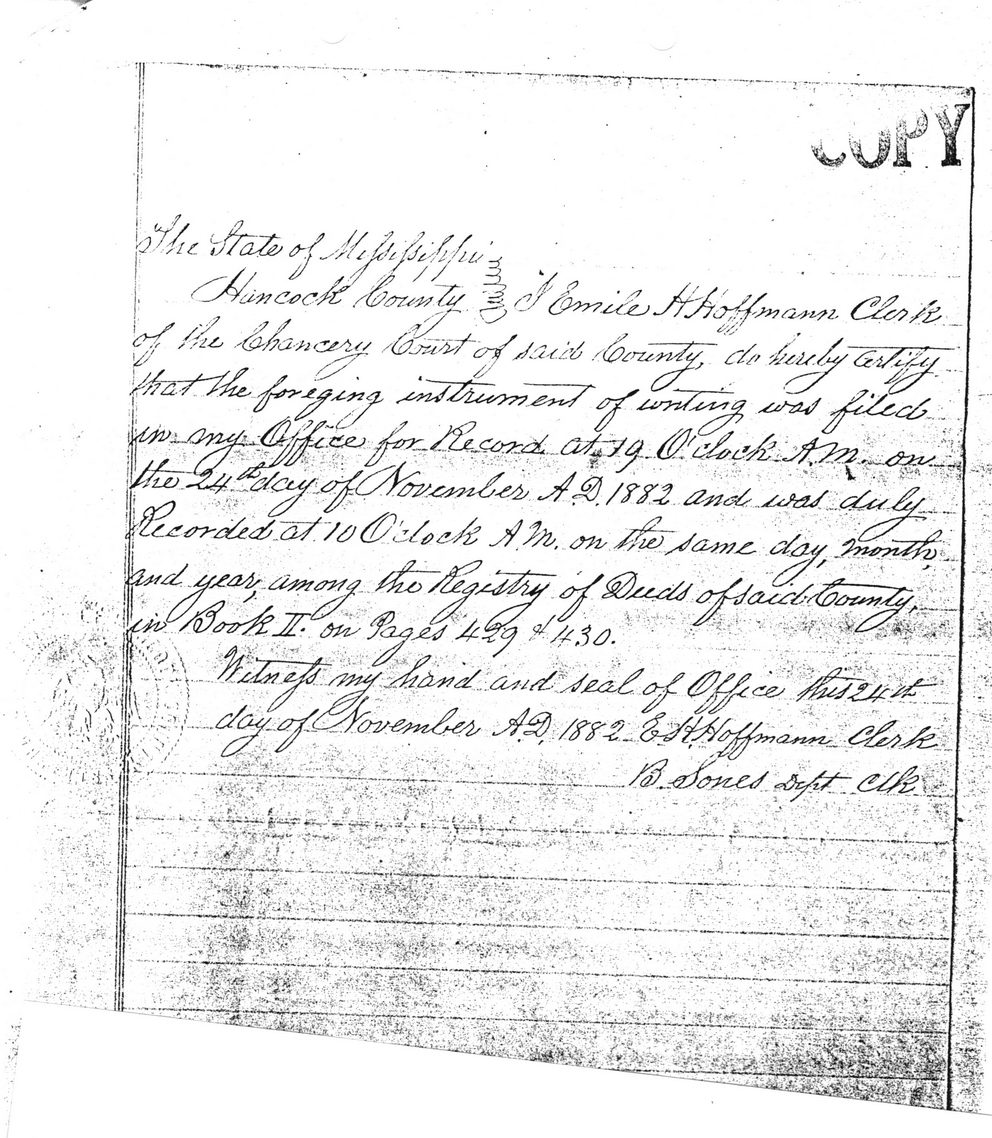 COPY
The State of Mississippi
Hancock County I Emile H Hoffmann Clerk
of the Chancery Court of said County, do hereby certify
that the foreging instrument of writing was filed
in my Office for Record at 19 O'clock A.M. on
the 24th day of November A.D. 1882 and was duly
Recorded at 10 O'clock A.M. on the same day, month,
and year, among the Registry of Deeds of said County,
in Book II. on Pages 429 & 430.
Witness my hand and seal of Office this 24th
day of November A.D. 1882 E H Hoffmann Clerk
B. Sones Dept Clk